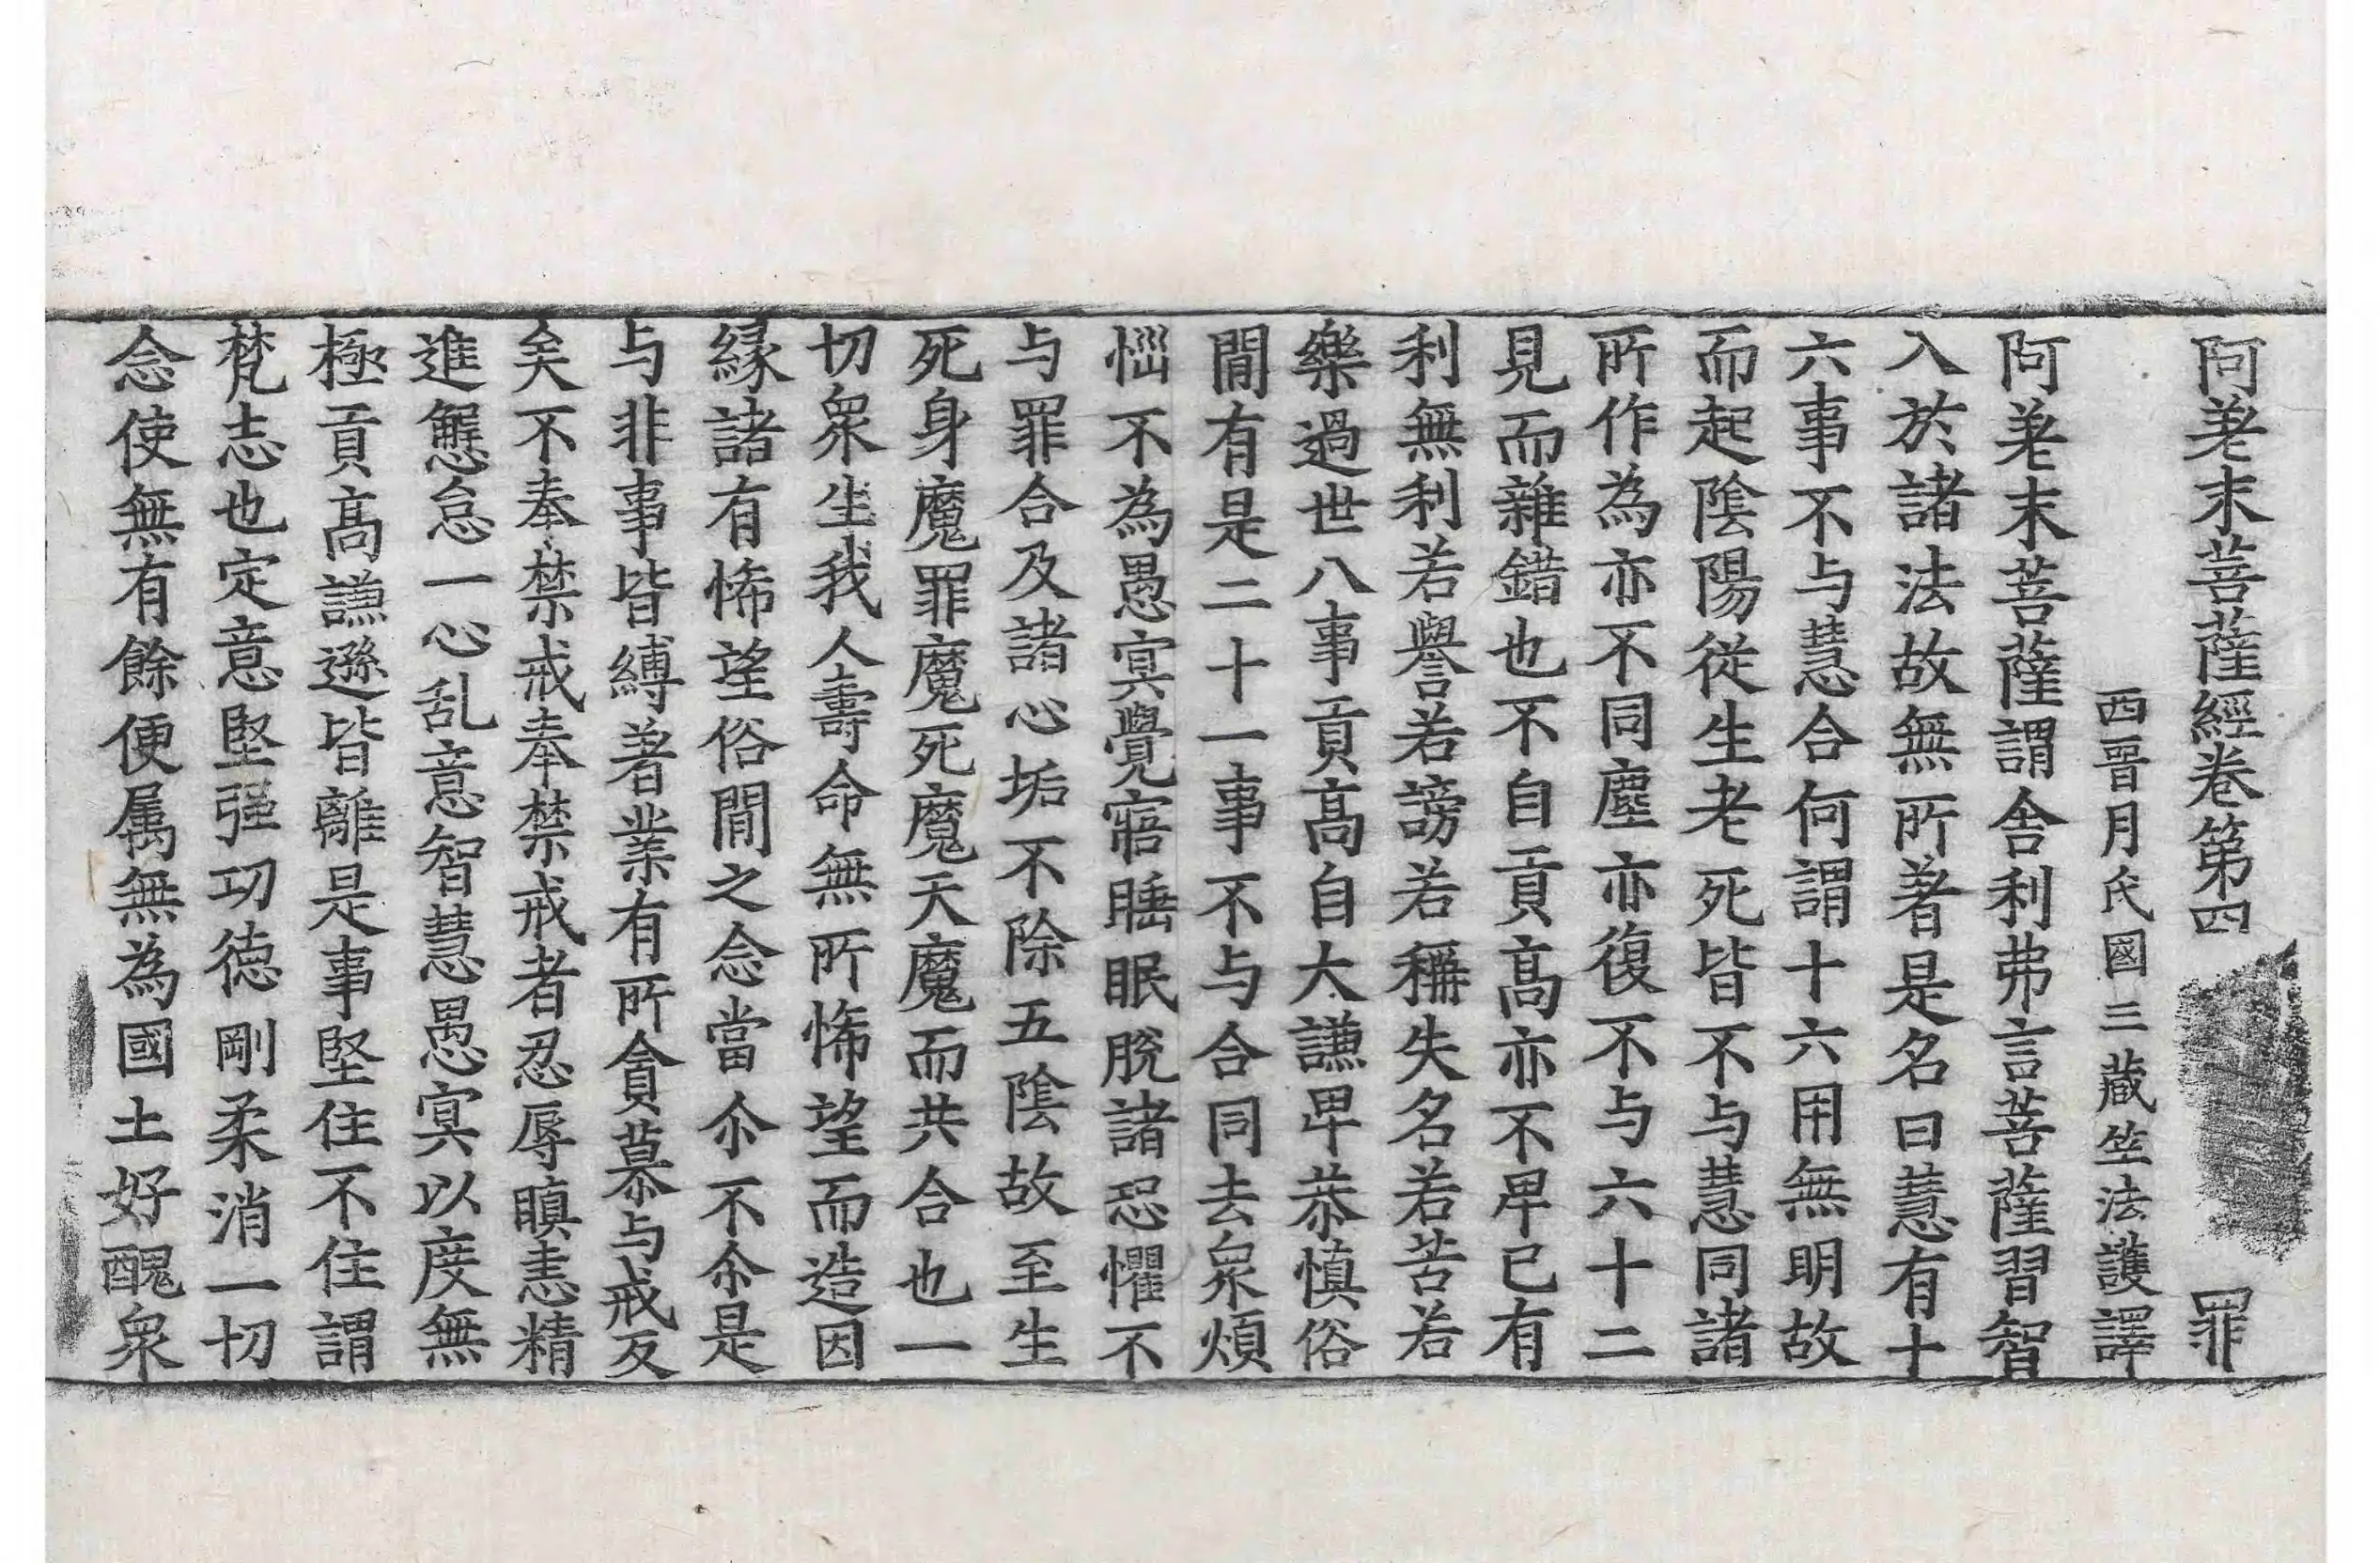 阿差末菩薩經卷第四 罪
西晉月氏國三藏竺法護譯
阿差末菩薩謂舍利弗言菩薩習智
入於諸法故無所著是名曰慧有十
六事不与慧合何謂十六用無明故
而起陰陽從生老死皆不与慧同諸
所作為亦不同塵亦復不与六十二
見而雜錯也不自貢高亦不卑已有
利無利若譽若謗若稱失名若苦若
樂過世八事貢高自大謙卑恭慎俗
閒有是二十一事不与合同去衆煩
惱不為愚冥覺寤睡眠脫諸恐懼不
与罪合及諸心垢不除五陰故至生
死身魔罪魔死魔天魔而共合也一
切衆生我人壽命無所悕望而造因
緣諸有悕望俗閒之念當尒不尒是
与非事皆縛著業有所貪慕与戒反
矣不奉禁戒奉禁戒者忍辱瞋恚精
進懈怠一心乱意智慧愚冥以度無
極貢高謙遜皆離是事堅住不住謂
梵志也定意堅强功德剛柔消一切
念使無有餘便属無為國土好醜衆